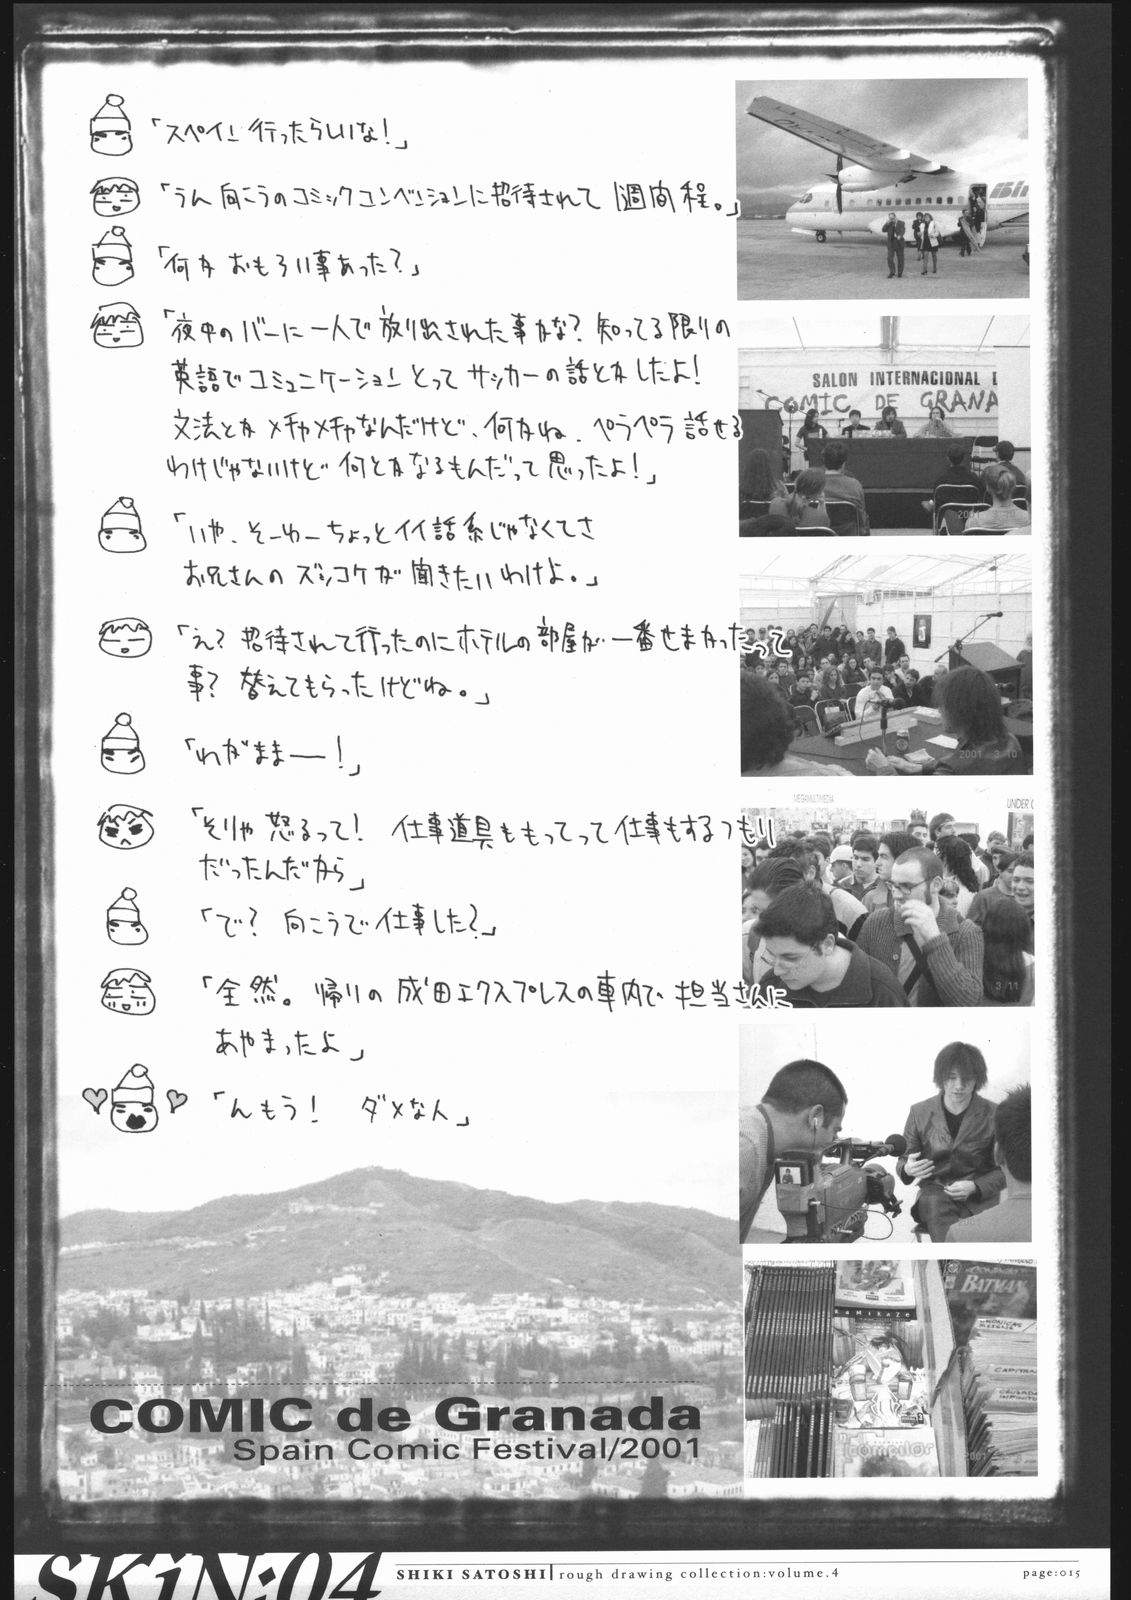 「スペイン行ったらしいな！」
「うん 向こうのコミックコンベンションに招待されて 1週間程。」
「何か おもろい事あった？」
「夜中のバーに一人で放り出された事かな？ 知ってる限りの
英語でコミュニケーションとってサッカーの話とかしたよ！
文法とかメチャメチャなんだけど、何かね、ペラペラ話せる
わけじゃないけど 何とかなるもんだって思ったよ！」
「いや、そーゆーちょっとイイ話系じゃなくてさ
お兄さんの ズッコケが 聞きたいわけよ。」
「え？ 招待されて行ったのにホテルの部屋が一番せまかったって
事？ 替えてもらったけどね。」
「わがままー！」
「そりゃ 怒るって！ 仕事道具ももってって仕事もするつもり
だったんだから」
「で？ 向こうで仕事した？」
「全然。帰りの成田エクスプレスの車内で 担当さんに
あやまったよ」
「んもう！ ダメな人」
SALON INTERNACIONAL D
COMIC DE GRANA
2001
2001 3 10
MEGAMULTIMEDIA
UNDER C
3 11
KAMIKAZE
BATMAN
COMIC de Granada
Spain Comic Festival/2001
SKiN:04
SHIKI SATOSHI rough drawing collection:volume.4
page:015